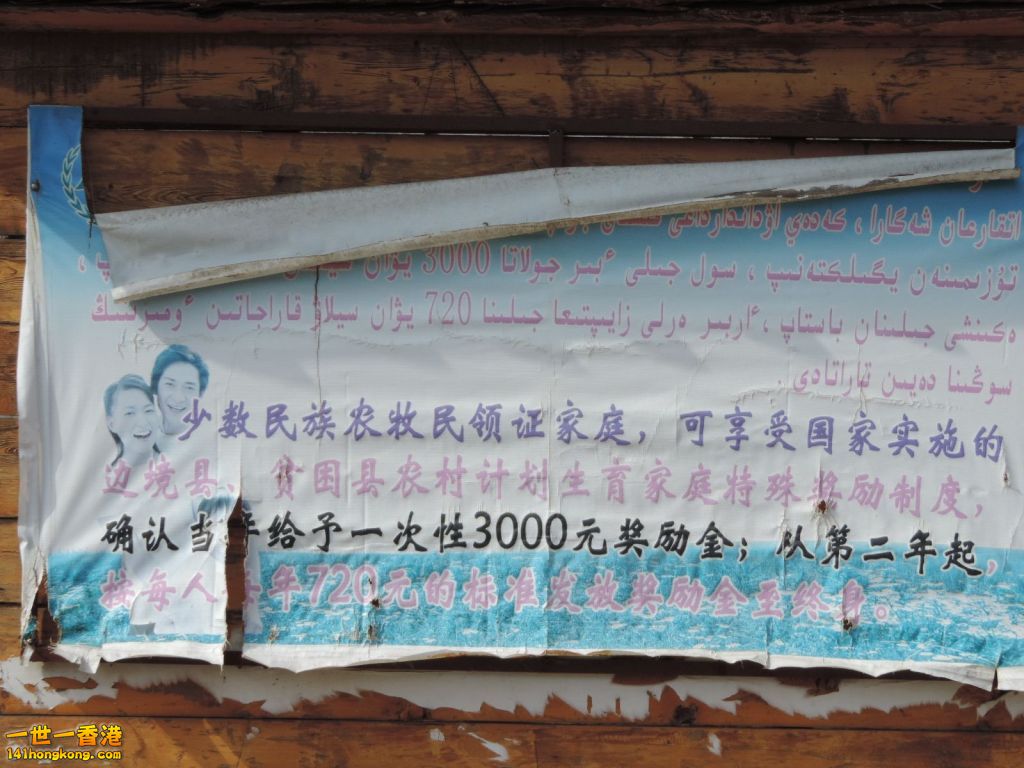 اتقارعان شەگارا ، كەدەي اۋداندارداعى
تۇزىمىنەن يگىلىكتەنىپ ، سول جىلى ءبىر جولاتا 3000 يۋان
ەكىنشى جىلىنان باستاپ ، ءاربىر ەرلى زايىپتىعا جىلىنا 720 يۋان سيلاۋ قاراجاتىن ءومىرىنىڭ
سوڭىنا دەيىن تاراتادى .
少数民族农牧民领证家庭，可享受国家实施的
边境县、贫困县农村计划生育家庭特殊奖励制度，
确认当年给予一次性3000元奖励金；从第二年起，
按每人每年720元的标准发放奖励金至终身。
一世一香港
141hongkong.com